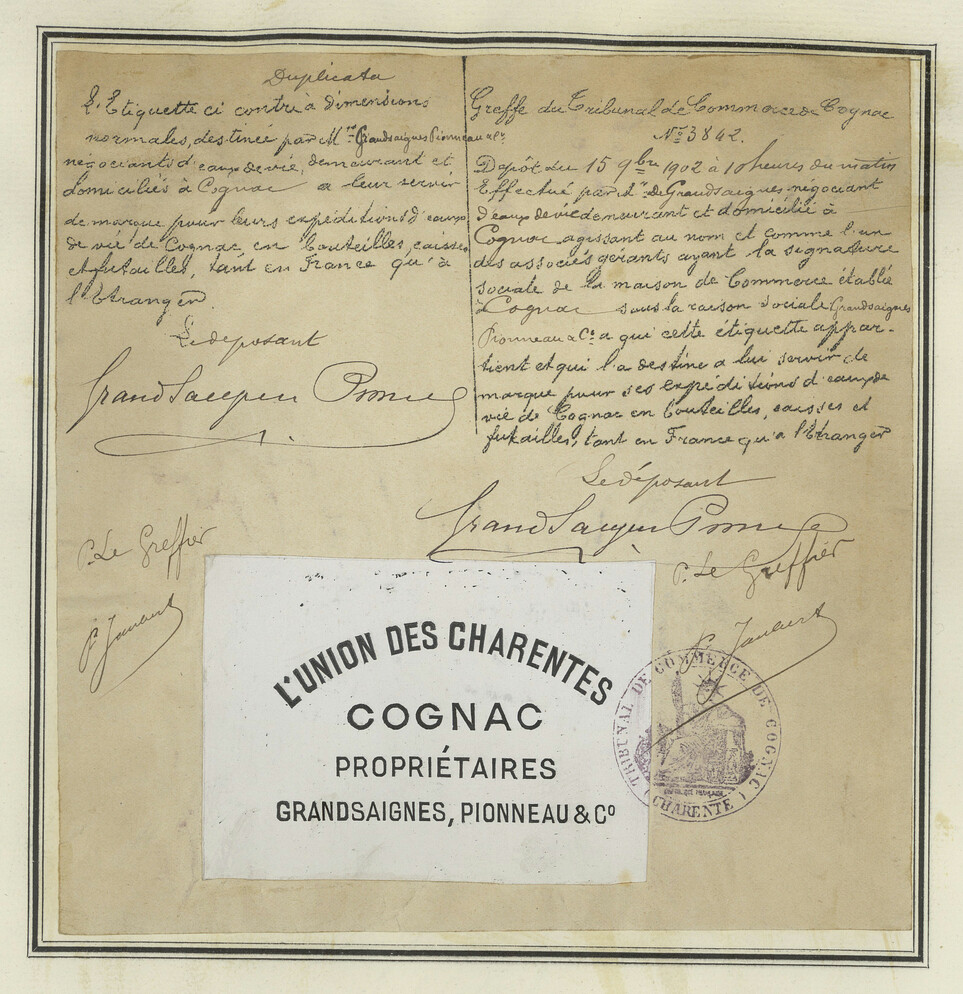 Duplicata
L'Etiquette ci contre à dimensions
normales, destinée par Mrs Grandsaignes Pionneau & Co
négociants d'eaux de vie, demeurant et
domiciliés à Cognac a leur servir
de marque pour leurs expéditions d'eaux
de vie de Cognac en bouteilles, caisses
et futailles, tant en France qu'à
l'Etranger
Le déposant
Grandsaignes Pionneau
P. Le Greffier
Greffe du Tribunal de Commerce de Cognac
No 3842.
Dépôt du 15 9bre 1902 à 10 heures du matin
Effectué par Mr de Grandsaignes négociant
d'eaux de vie demeurant et domicilié à
Cognac agissant au nom et comme l'un
des associés gérants ayant la signature
sociale de la maison de Commerce établie
à Cognac sous la raison sociale Grandsaignes
Pionneau & Co a qui cette étiquette appar-
tient et qui l'a destine a lui servir de
marque pour ses expéditions d'eaux de
vie de Cognac en bouteilles, caisses et
futailles, tant en France qu'a l'Etranger
Le déposant
Grandsaignes Pionneau
P. Le Greffier
L'UNION DES CHARENTES
COGNAC
PROPRIÉTAIRES
GRANDSAIGNES, PIONNEAU & Co
TRIBUNAL DE COMMERCE DE COGNAC
(CHARENTE)